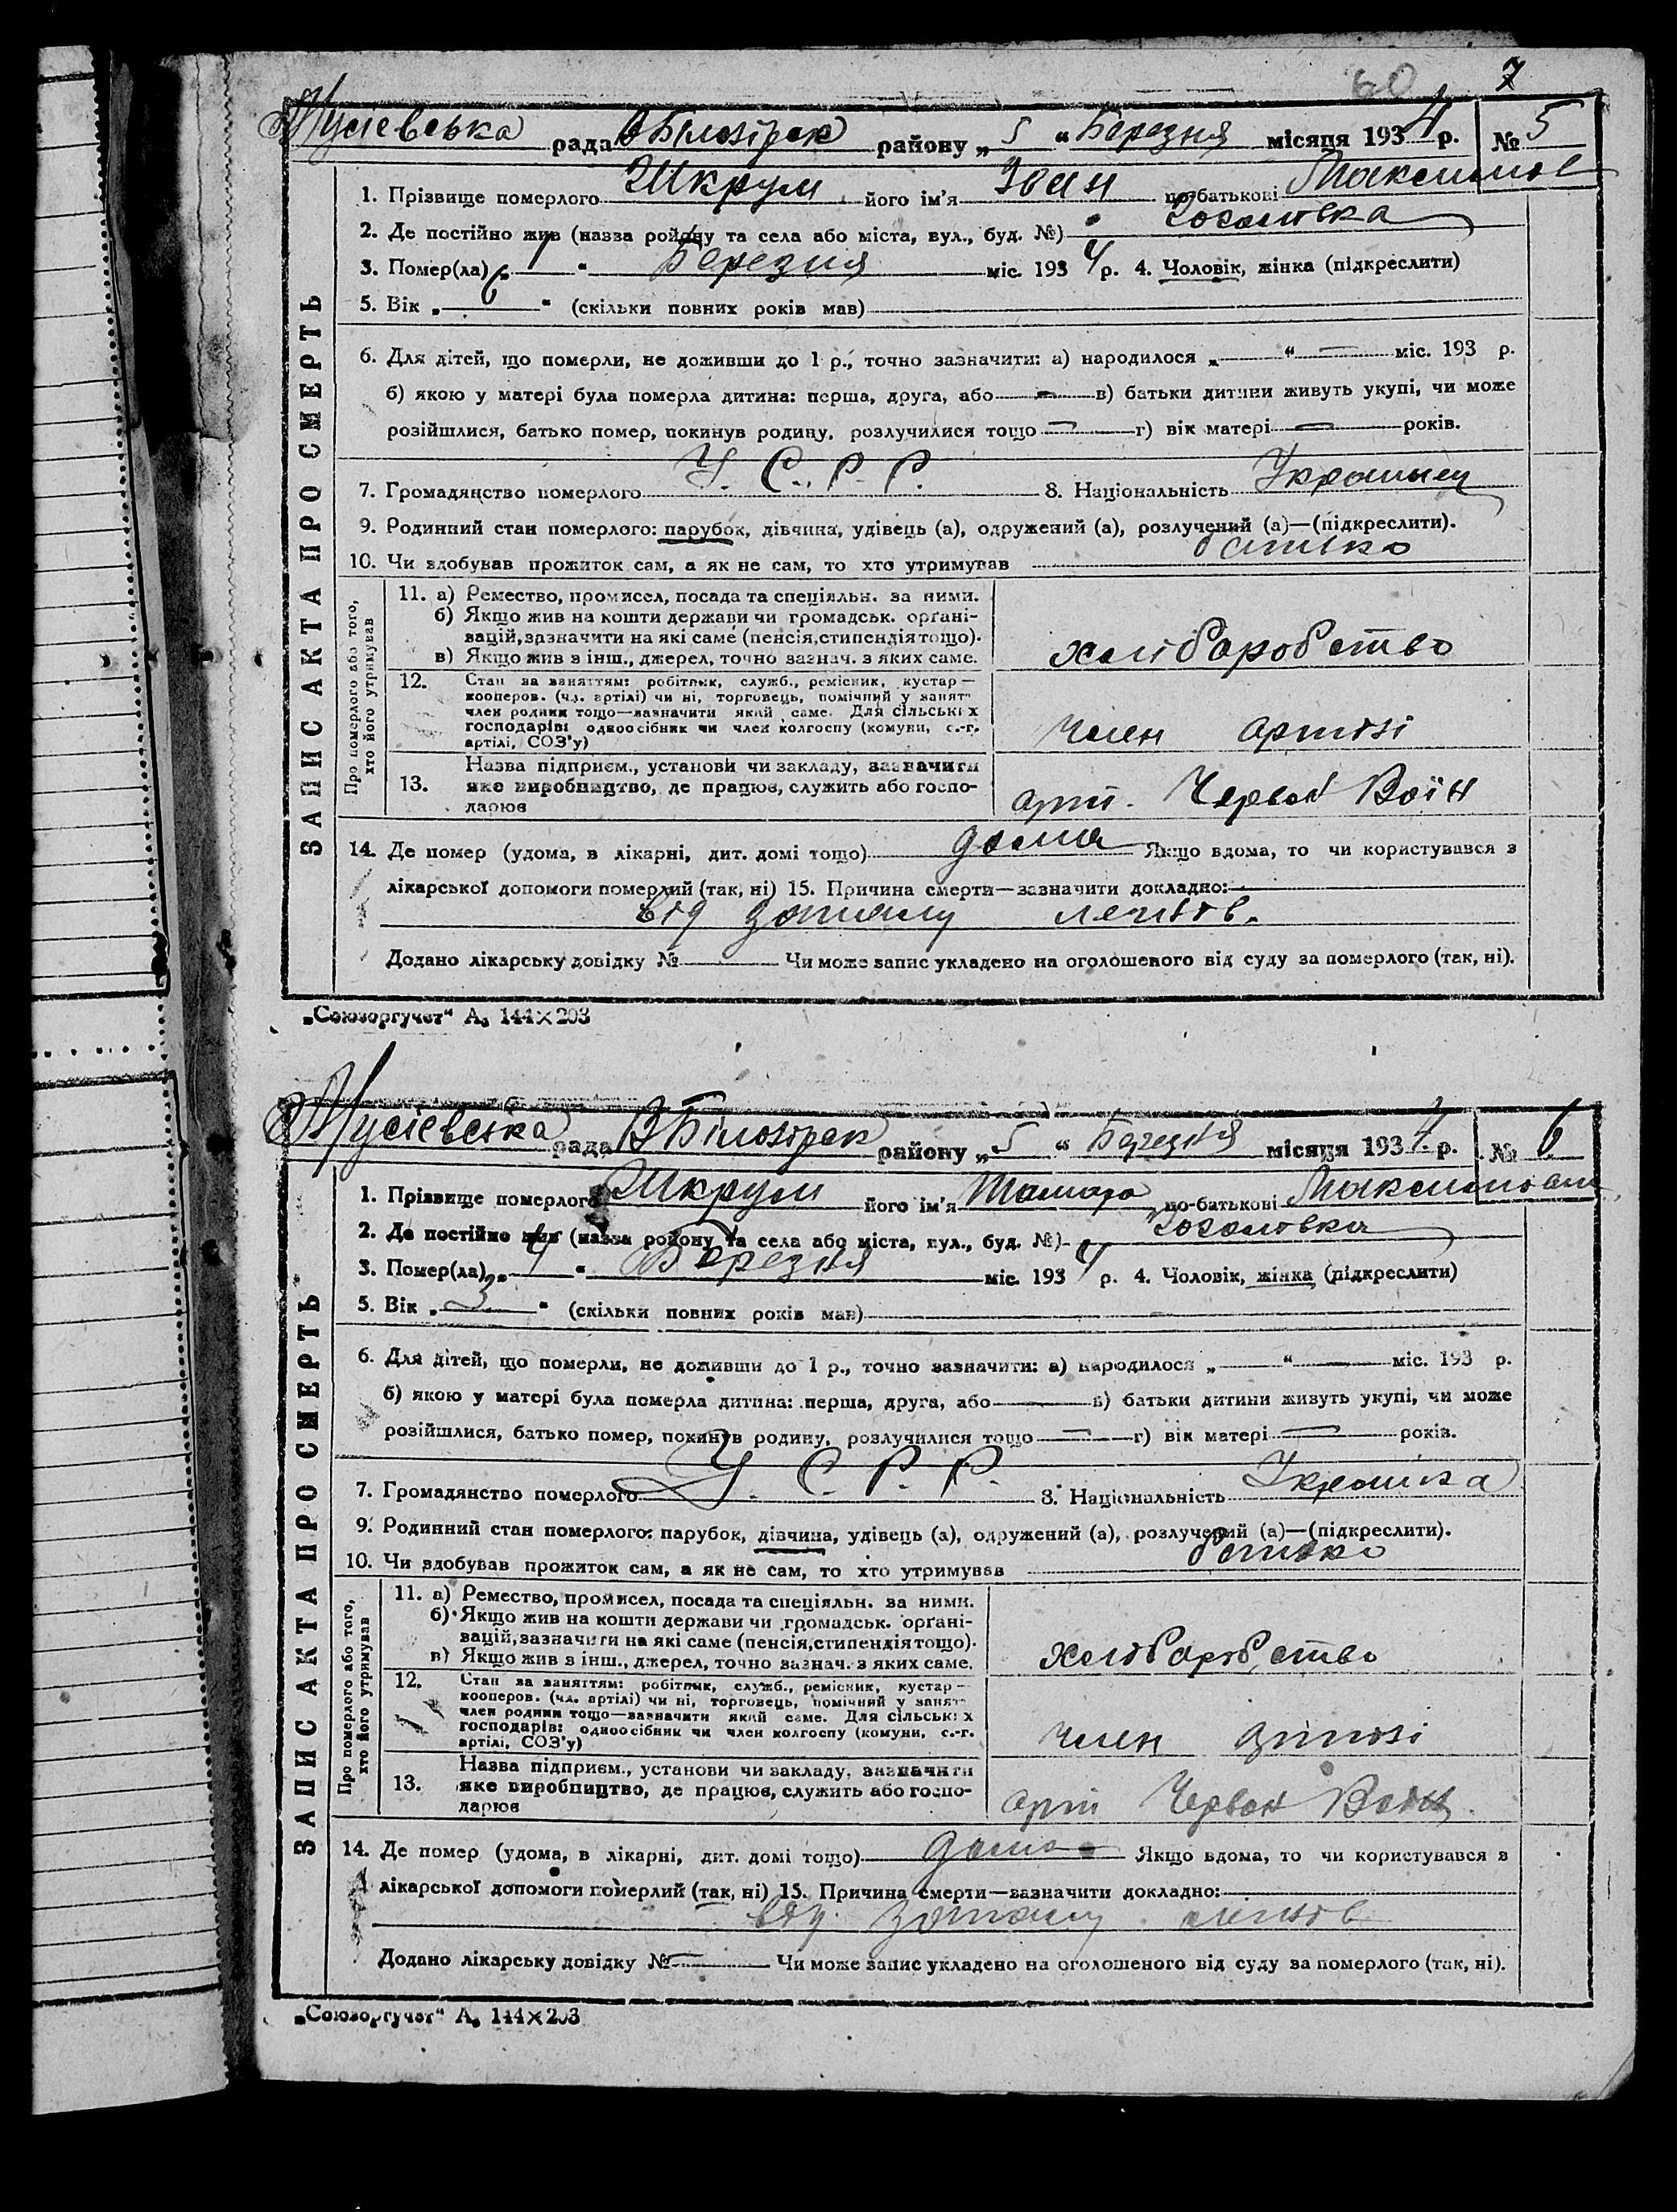 60 7
Мусієвська рада В Білозірск району „5“ Березня місяця 1934 р. № 5
ЗАПИС АКТА ПРО СМЕРТЬ
1. Прізвище померлого Шкрум його ім'я Іван по-батькові Максимов
2. Де постійно жив (назва району та села або міста, вул., буд. №)
3. Помер(ла) „1“ Березня міс. 1934 р. 4. Чоловік, жінка (підкреслити)
5. Вік „6“ (скільки повних років мав)
6. Для дітей, що померли, не доживши до 1 р., точно зазначити: а) народилося „ “ — міс. 193 р.
б) якою у матері була померла дитина: перша, друга, або — в) батьки дитини живуть укупі, чи може
розійшлися, батько помер, покинув родину, розлучилися тощо — г) вік матері — років.
7. Громадянство померлого У. С. Р. Р. 8. Національність Українец
9. Родинний стан померлого: парубок, дівчина, удівець (а), одружений (а), розлучений (а)—(підкреслити).
10. Чи здобував прожиток сам, а як не сам, то хто утримував батько
Про померлого або того, хто його утримував
11. а) Ремество, промисел, посада та спеціяльн. за ними.
б) Якщо жив на кошти держави чи громадськ. органі-
зацій, зазначити на які саме (пенсія, стипендія тощо).
в) Якщо жив з інш., джерел, точно зазнач. з яких саме.
хліборобство
12. Стан за заняттям: робітник, служб., ремісник, кустар—
кооперов. (чл. артілі) чи ні, торговець, помічний у занят-
член родини тощо—зазначити який саме. Для сільських
господарів: одноосібник чи член колгоспу (комуни, с.-г.
артілі, СОЗ'у)
член артілі
13. Назва підприєм., установи чи закладу, зазначити
яке виробництво, де працює, служить або госпо-
дарює
арті. Червон Воїн
14. Де помер (удома, в лікарні, дит. домі тощо) дома Якщо вдома, то чи користувався з
лікарської допомоги померлий (так, ні) 15. Причина смерти—зазначити докладно:
від запалу легнів.
Додано лікарську довідку № Чи може запис укладено на оголошеного від суду за померлого (так, ні).
„Союзоргучет“ А5 144×203
Мусієвсіка рада В Білозірск району „5“ Березня місяця 1934 р. № 6
ЗАПИС АКТА ПРО СМЕРТЬ
1. Прізвище померлого Шкрум його ім'я Тамара по-батькові
2. Де постійно жив (назва району та села або міста, вул., буд. №)
3. Помер(ла) „4“ Березня міс. 1934 р. 4. Чоловік, жінка (підкреслити)
5. Вік „3“ (скільки повних років мав)
6. Для дітей, що померли, не доживши до 1 р., точно зазначити: а) народилося „ “ — міс. 193 р.
б) якою у матері була померла дитина: перша, друга, або — в) батьки дитини живуть укупі, чи може
розійшлися, батько помер, покинув родину, розлучилися тощо — г) вік матері — років.
7. Громадянство померлого У. С. Р. Р. 8. Національність Українка
9. Родинний стан померлого: парубок, дівчина, удівець (а), одружений (а), розлучений (а)—(підкреслити).
10. Чи здобував прожиток сам, а як не сам, то хто утримував батько
Про померлого або того, хто його утримував
11. а) Ремество, промисел, посада та спеціяльн. за ними.
б) Якщо жив на кошти держави чи громадськ. органі-
зацій, зазначити на які саме (пенсія, стипендія тощо).
в) Якщо жив з інш., джерел, точно зазнач. з яких саме.
хліборобство
12. Стан за заняттям: робітник, служб., ремісник, кустар—
кооперов. (чл. артілі) чи ні, торговець, помічний у занят-
член родини тощо—зазначити який саме. Для сільських
господарів: одноосібник чи член колгоспу (комуни, с.-г.
артілі, СОЗ'у)
член артілі
13. Назва підприєм., установи чи закладу, зазначити
яке виробництво, де працює, служить або госпо-
дарює
арті Червон Воїн.
14. Де помер (удома, в лікарні, дит. домі тощо) дома Якщо вдома, то чи користувався з
лікарської допомоги померлий (так, ні) 15. Причина смерти—зазначити докладно:
від. запалу легнів
Додано лікарську довідку № Чи може запис укладено на оголошеного від суду за померлого (так, ні).
„Союзоргучет“ А5 144×203